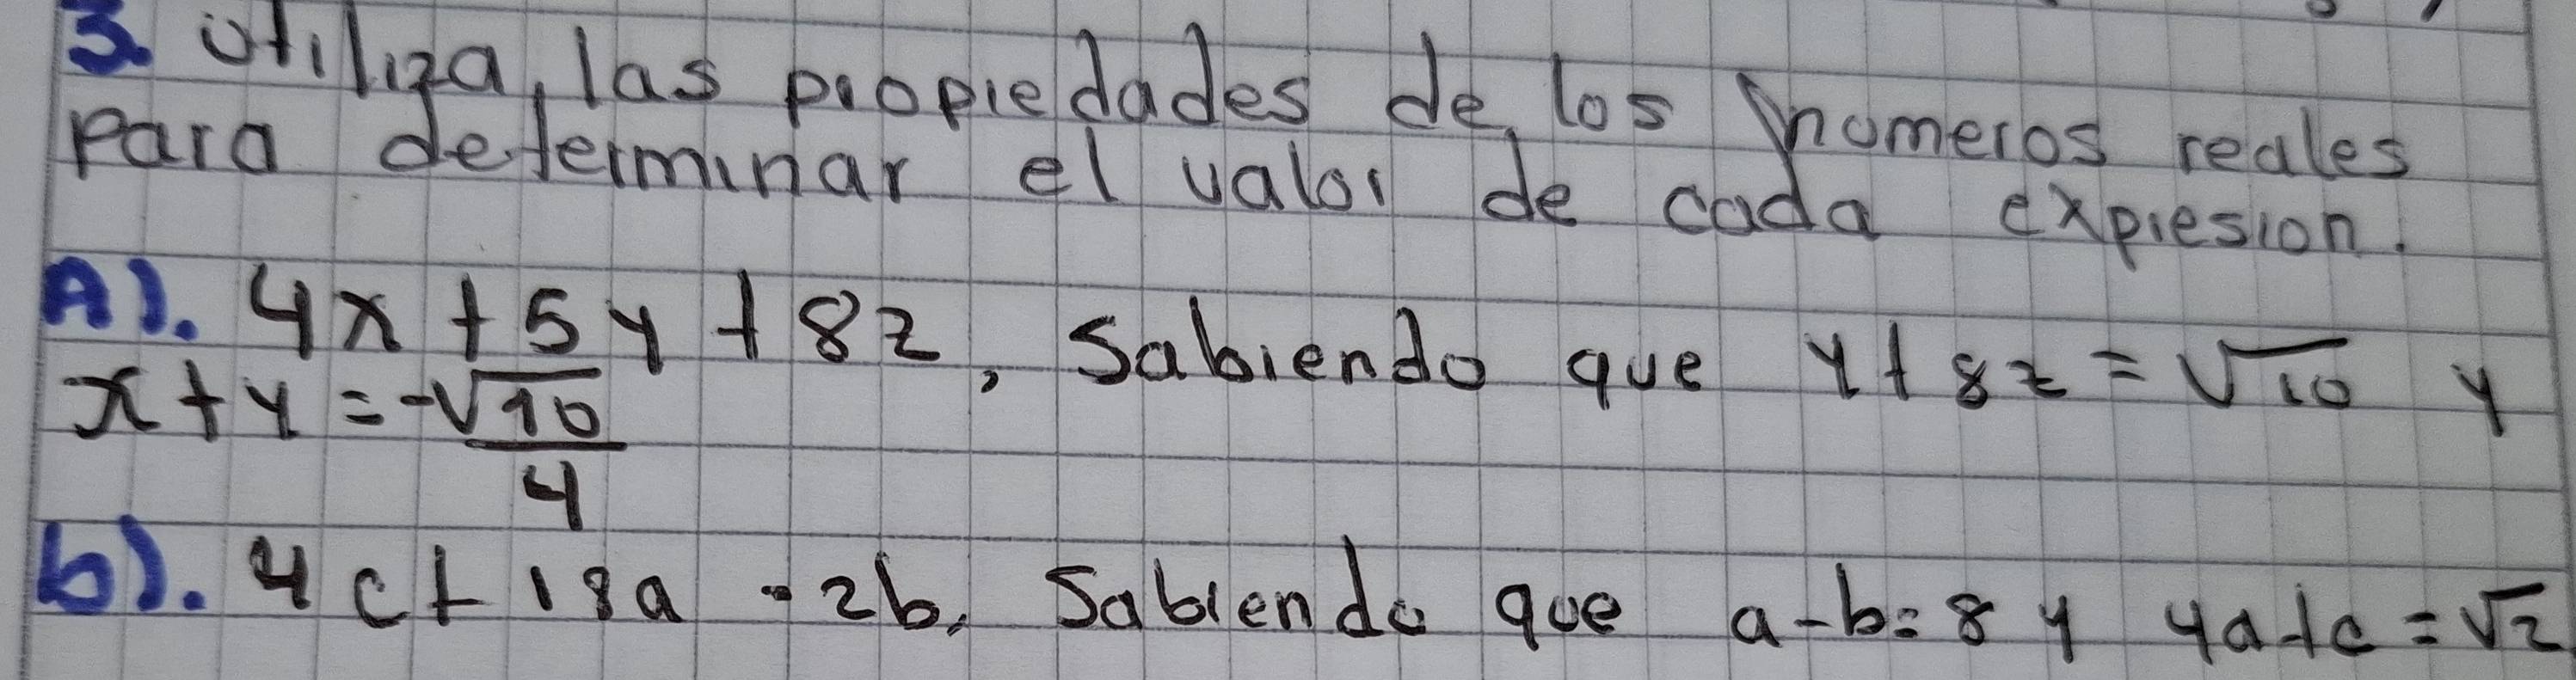 3. Utiliza, las propiedades de los numeros reales
para determinar el valor de cada expresion.
A). 4x + 5y + 8z, Sabiendo que y + 8z = √10 y
x + y = -√10/4
b). 4c + 18a - 2b, Sabiendo que a-b=8 y 4a+c=√2